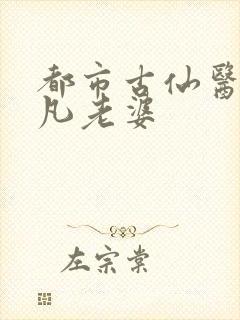 都市古仙醫
凡老婆
左宗棠